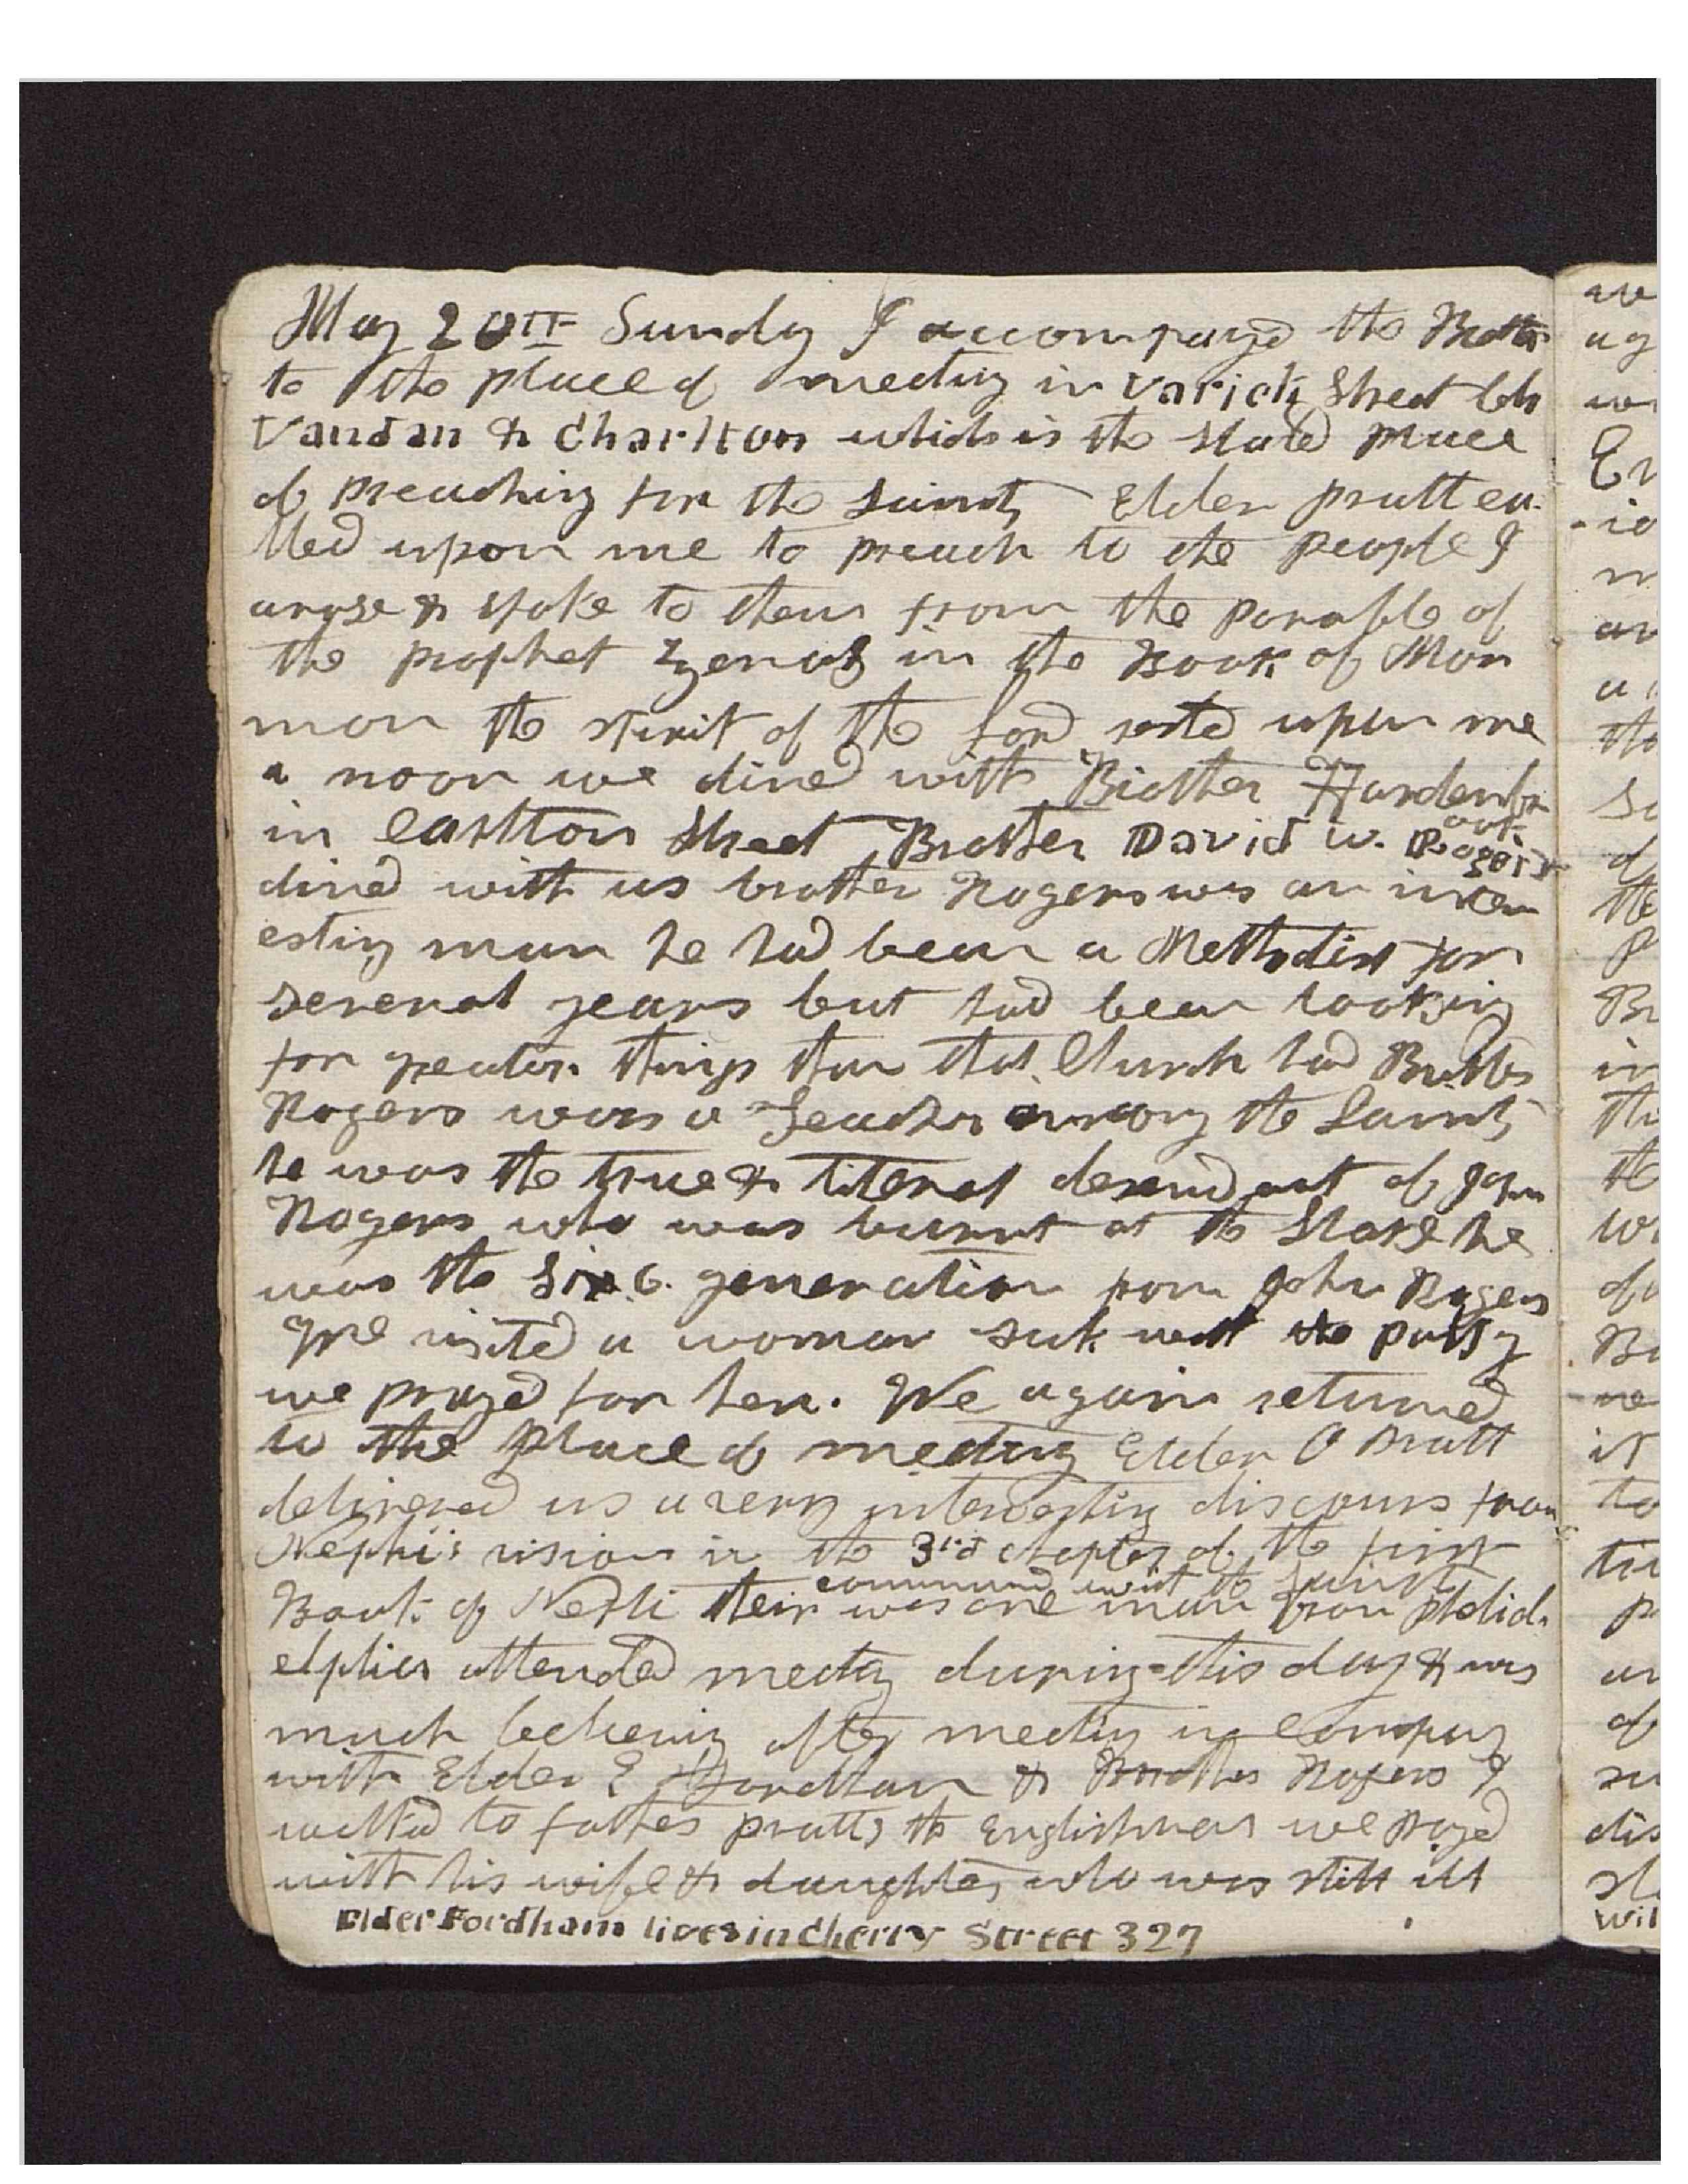 May 20TH Sunday I accompayed the Brother
to the place of meeting in Varick Street btn
Vandan & Charlton which is the stated place
of preaching for the Saints Elder pratt ca-
lled upon me to preach to the people I
arose & spoke to them from the parable of
the prophet Zenos in the Book of Mor
mon the spirit of the Lord rested upon me
a noon we dined with Brother Hardenbr
ook
in Carlton Street Brother David W. Rogers
dined with us brother Rogers was an inter
esting man he had been a Methodist for
several years but had been looking
for greater things than that Church had Brother
Rogers was a Teacher among the Saints
he was the true & literal desendant of John
Rogers who was burnt at the Stake he
was the Six 6. generation from John Rogers
We visited a woman sick with the palsy
we prayed for her. We again returned
to the place of meeting Elder O Pratt
delivered us a very interesting discours from
Nephi's vision in the 3rd chapter of the first
communed with the Saints
Book of Nephi their was one man from philid-
elphia attended meeting during this day & was
much believing after meeting in company
with Elder E Fordham & Brother Rogers I
walked to father pratts the Englishman we prayed
with his wife & daughter, who was still ill
Elder Fordham lives in cherry Street 327
ave
ag
Er
m
an
the
So
of
the
P
Br
in
the
the
of
Br
it
to
p
of
dis
Wil